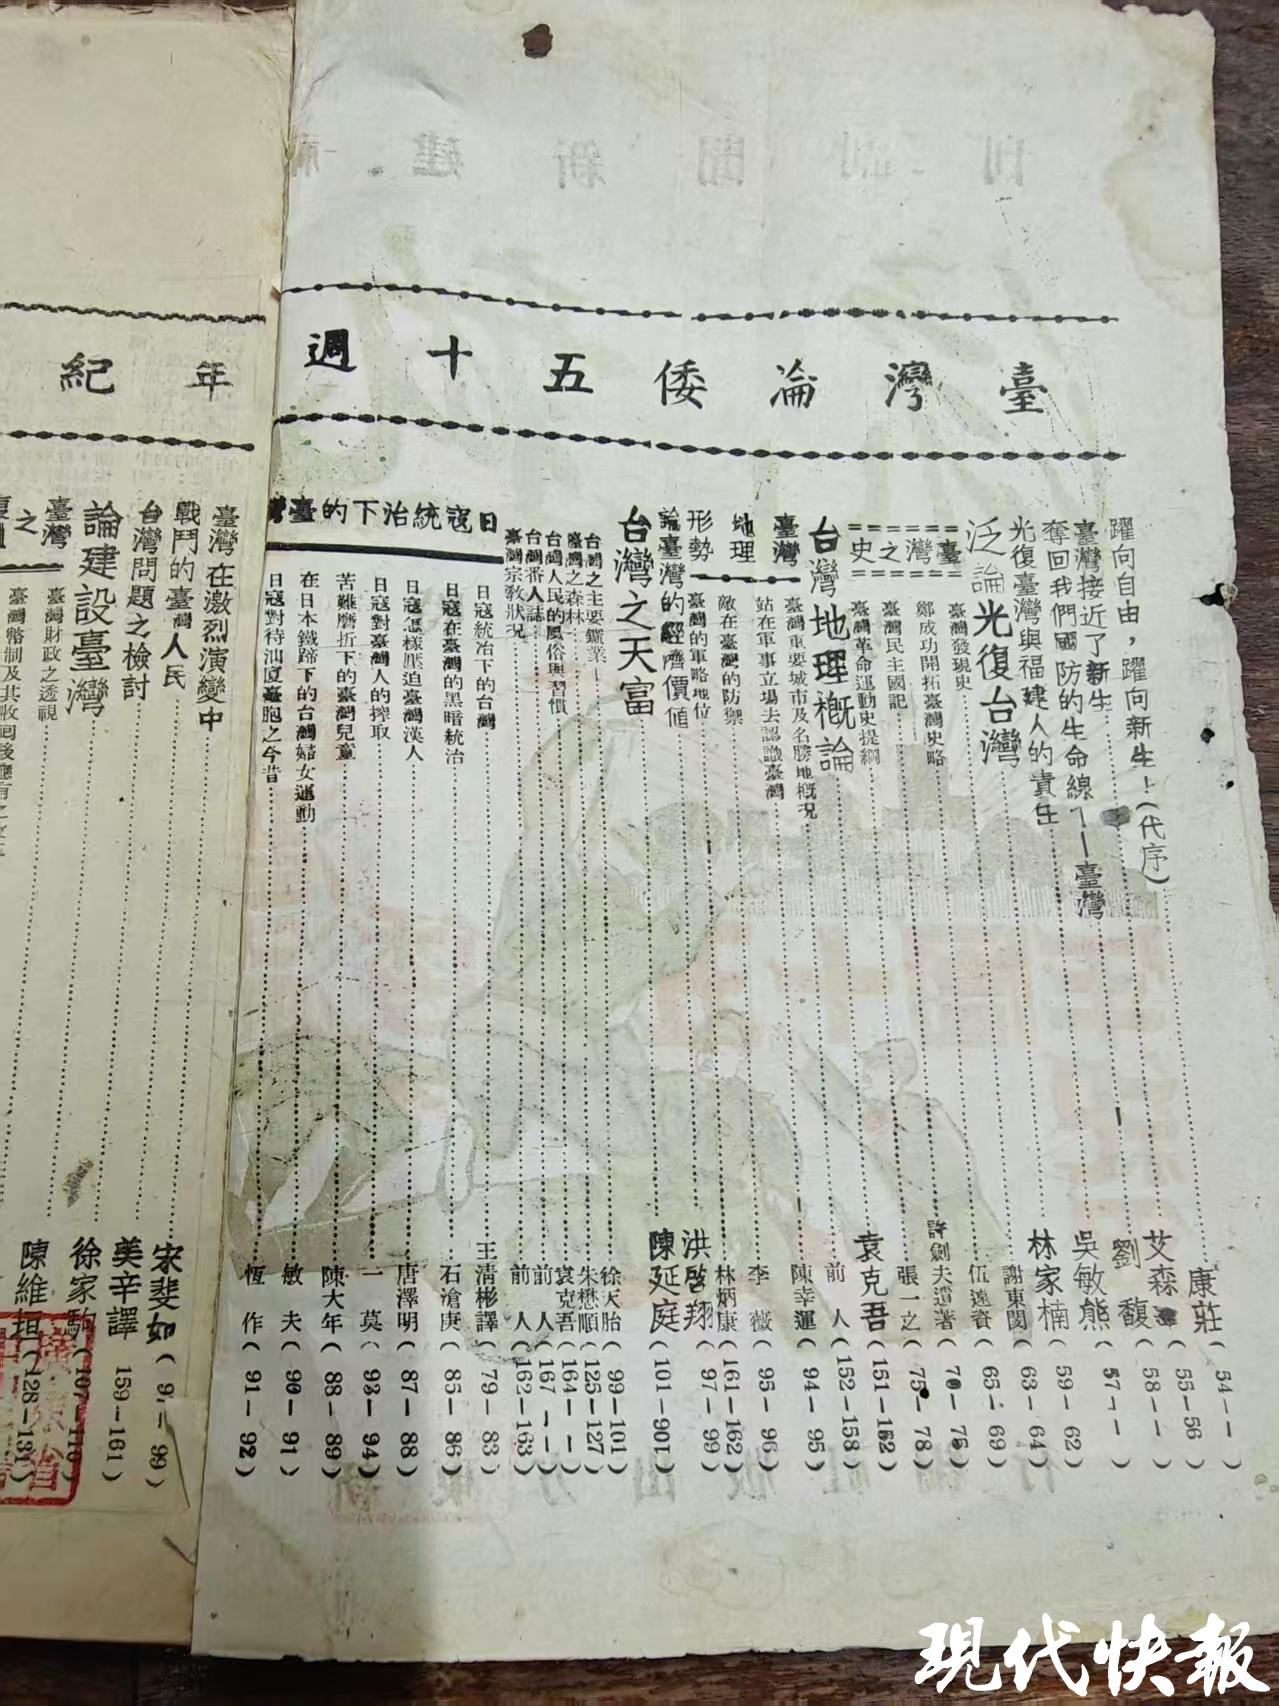 臺灣淪倭五十週年紀
躍向自由，躍向新生！（代序）康莊（54——）
臺灣接近了新生 艾森（55—56）
奪回我們國防的生命線——臺灣 劉馥（58——）
光復臺灣與福建人的責任 吳敏熊（57——）
泛論光復台灣 林家楠（59—62）
臺灣之史
臺灣發現史 謝東閔（63—64）
鄭成功開拓臺灣史略 伍遠資（65—69）
臺灣民主國記 許劍夫遺著（70—75）
臺灣革命運動史提綱 張一之（75—78）
台灣地理概論 袁克吾（151—152）
臺灣地理形勢
臺灣重要城市及名勝地概況 前人（152—158）
站在軍事立場去認識臺灣 陳幸運（94—95）
敵在臺灣的防禦 李薇（95—96）
臺灣的軍略地位 林炳康（161—162）
論臺灣的經濟價値 洪啓翔（97—99）
台灣之天富 陳延庭（101—901）
台灣之主要鑛業 徐天胎（99—101）
臺灣之森林 朱懋順（125—127）
台灣人民的風俗與習慣 袁克吾（164——）
台灣番人誌 前人（167——）
臺灣宗敎狀況 前人（162—163）
日寇統治下的臺灣
日寇統治下的台灣 王清彬譯（79—83）
日寇在臺灣的黑暗統治 石滄庚（85—86）
日寇怎樣壓迫臺灣漢人 唐澤明（87—88）
日寇對臺灣人的搾取 一莫（93—94）
苦難磨折下的臺灣兒童 陳大年（88—89）
在日本鐵蹄下的台灣婦女運動 敏夫（90—91）
日寇對待汕厦臺胞之今昔 恆作（91—92）
臺灣在激烈演變中 宋斐如
戰鬥的臺灣人民 美辛譯 159—161）
台灣問題之檢討 徐家駒（107—110）
論建設臺灣 陳維垣（128—131）
臺灣之
臺灣財政之透視
臺灣幣制及其收回後應有之
现代快報